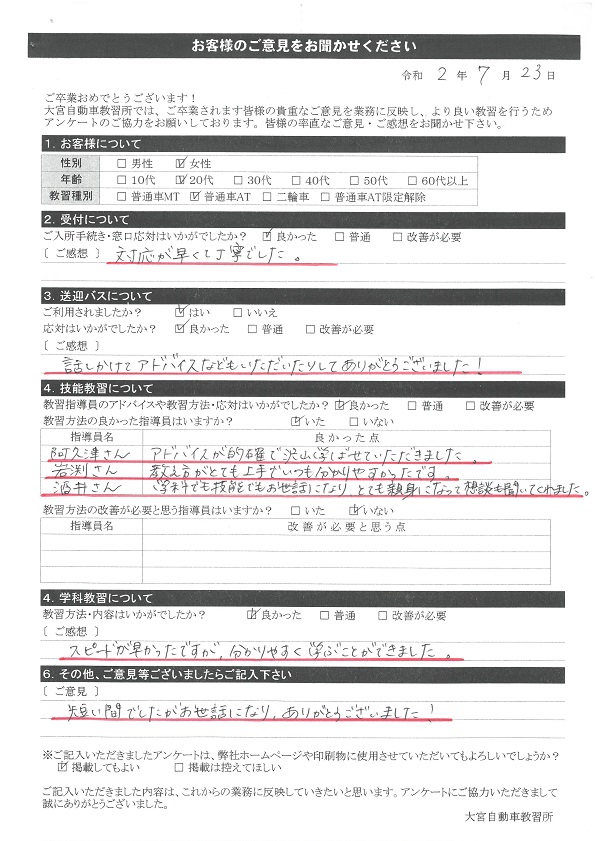 お客様のご意見をお聞かせください
令和 2 年 7 月 23 日
ご卒業おめでとうございます!
大宮自動車教習所では、ご卒業されます皆様の貴重なご意見を業務に反映し、より良い教習を行うため
アンケートのご協力をお願いしております。皆様の率直なご意見・ご感想をお聞かせ下さい。
1. お客様について
性別 □ 男性 ☑ 女性
年齢 □ 10代 ☑ 20代 □ 30代 □ 40代 □ 50代 □ 60代以上
教習種別 □ 普通車MT ☑ 普通車AT □ 二輪車 □ 普通車AT限定解除
2. 受付について
ご入所手続き・窓口応対はいかがでしたか? ☑ 良かった □ 普通 □ 改善が必要
〔 ご感想 〕 対応が早くて丁寧でした。
3. 送迎バスについて
ご利用されましたか? ☑ はい □ いいえ
応対はいかがでしたか? ☑ 良かった □ 普通 □ 改善が必要
〔 ご感想 〕
話しかけてアドバイスなどもいただいたりしてありがとうございました!
4. 技能教習について
教習指導員のアドバイスや教習方法・応対はいかがでしたか? ☑ 良かった □ 普通 □ 改善が必要
教習方法の良かった指導員はいますか? ☑ いた □ いない
指導員名 良かった点
阿久津さん アドバイスが的確で沢山学ばせていただきました。
岩渕さん 教え方がとても上手でいつも分かりやすかったです。
酒井さん 学科でも技能でもお世話になり とても親身になって想談も聞いてくれました。
教習方法の改善が必要と思う指導員はいますか? □ いた ☑ いない
指導員名 改善が必要と思う点
4. 学科教習について
教習方法・内容はいかがでしたか? ☑ 良かった □ 普通 □ 改善が必要
〔 ご感想 〕
スピードが早かったですが、分かりやすく学ぶことができました。
6. その他、ご意見等ございましたらご記入下さい
〔 ご意見 〕
短い間でしたがお世話になり、ありがとうございました!
※ご記入いただきましたアンケートは、弊社ホームページや印刷物に使用させていただいてもよろしいでしょうか?
☑ 掲載してもよい □ 掲載は控えてほしい
ご記入いただきました内容は、これからの業務に反映していきたいと思います。アンケートにご協力いただきまして
誠にありがとうございました。
大宮自動車教習所